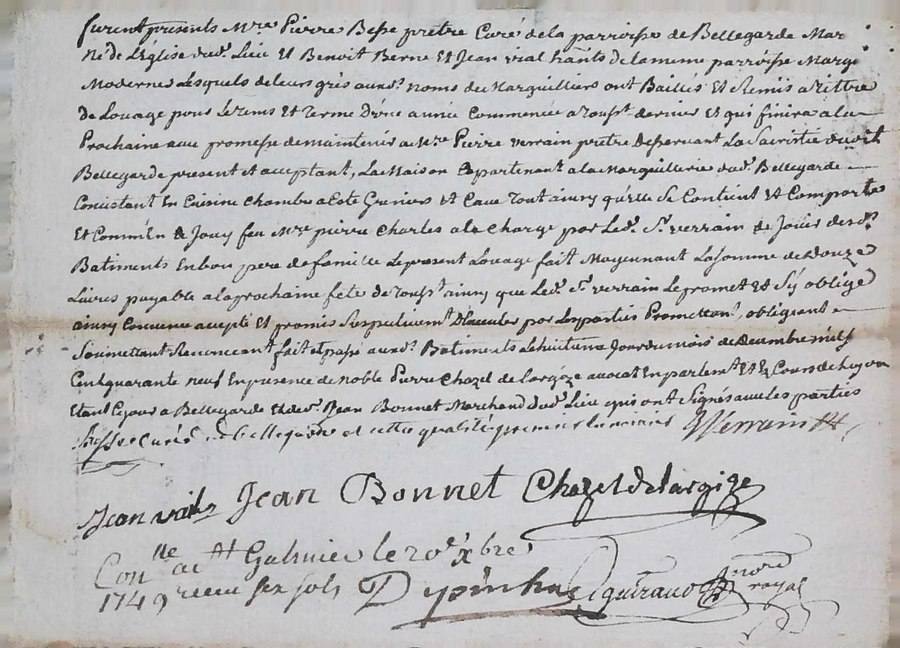 furent présents Mre Pierre Besse prêtre Curé de la parroisse de Bellegarde Mar
de L'Eglise dud. Lieu Et Benoit Berne Et Jean vial hants de la meme parroisse Marg
Modernes Lesquels de leurs grés aud. noms de Marguilliers ont Baillés Et Remis a tittre
de Louage pour Le tems Et terme D'une année Commencé a Touss.t dernier Et qui finira a la
Prochaine avec promesse de maintenir a Mre Pierre verrain prêtre Desservant La Sacristie dudit
Bellegarde present et acceptant, La Maison Appartenant a la Marguillerie dud. Bellegarde
Consistant En Cuisine Chambre a Coté Greniers Et Cave Tout ainsy qu'elle Se Contient Et Comporte
Et Comme En a Jouy feu Mre pierre Charles a la Charge par Led. Sr. verrain de Jouir desd.
Batiments En bon pere de famille Le present Louage fait Moyennant La somme de Douze
Livres payable a la prochaine fete de Touss.t ainsy que Led. Sr. verrain Le promet Et S'y oblige
ainsy Convenu accepté Et promis Respectivemt. D'Executer par Les parties Promettant, obligeant
Soumettant Renoncant fait et passé auxd. Batiments Le huitieme Jour du mois de Decembre mil sept
Cent quarante neuf En presence de noble Pierre Chazel de Largeze avocat En parlemt. Et Es Cours de Lyon
Etant Ce jour a Bellegarde Et de Sr. Jean Bonnet Marchand dud. Lieu qui ont Signés avec les parties
Besse Curé de bellegarde et cette qualité premier luminier Verrain ptre
Jean vial Jean Bonnet Chazel de largeze
Con.lle act. Galmier le 20e xbre
1749 receu six sols Dupinhac
Nore
royal